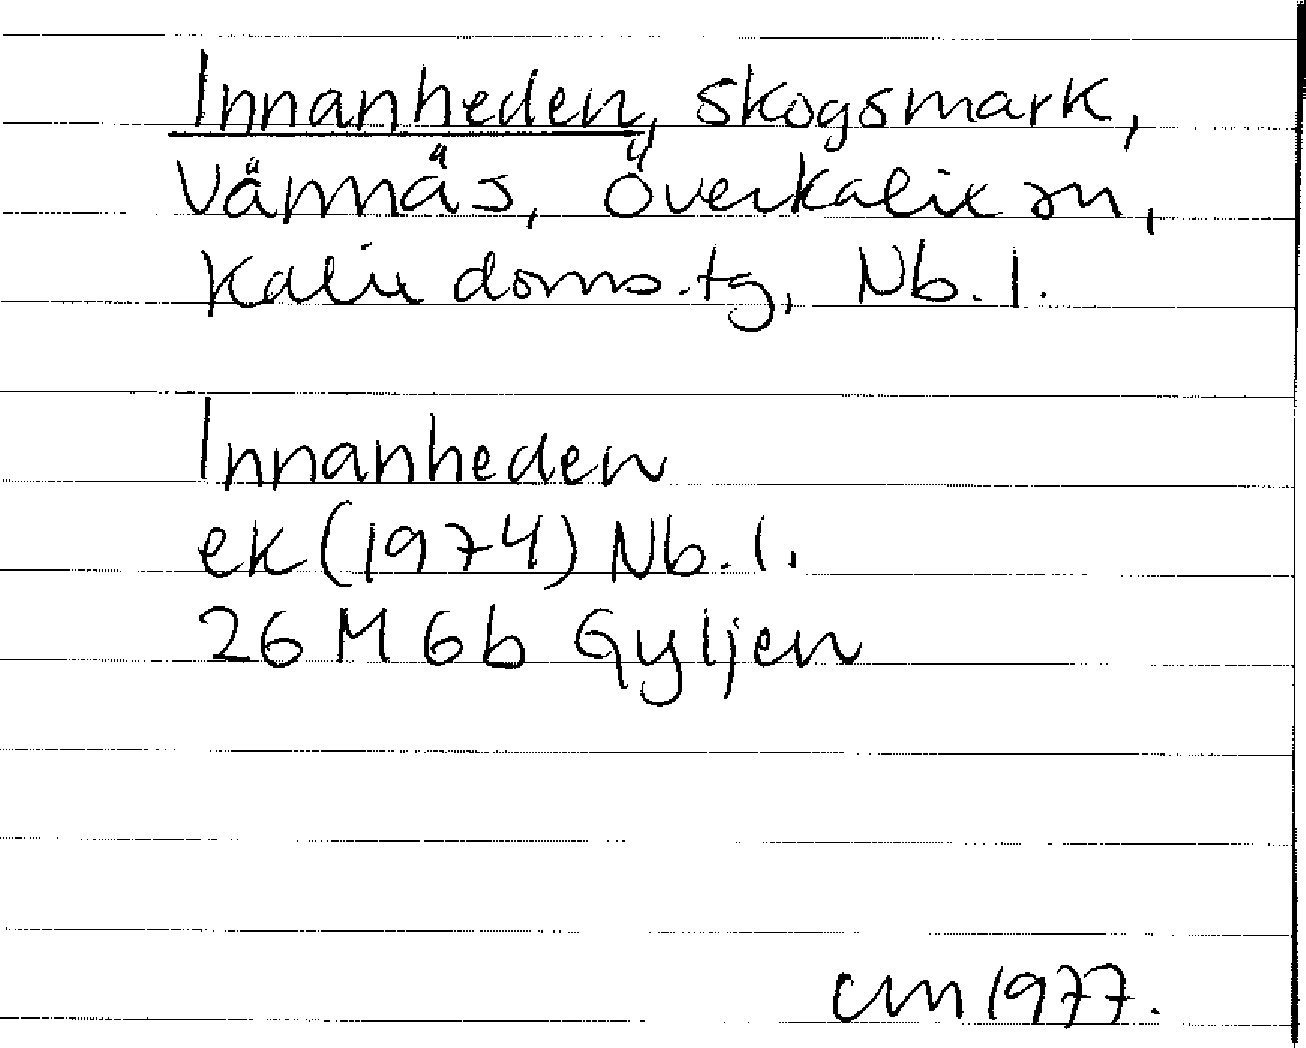 Innanheden, skogsmark,
Vännäs, Överkalix sn,
Kalix doms.tg, Nb. l.
Innanheden
ek (1974) Nb. l.
26 M 6b Gyljen
CM 1977.